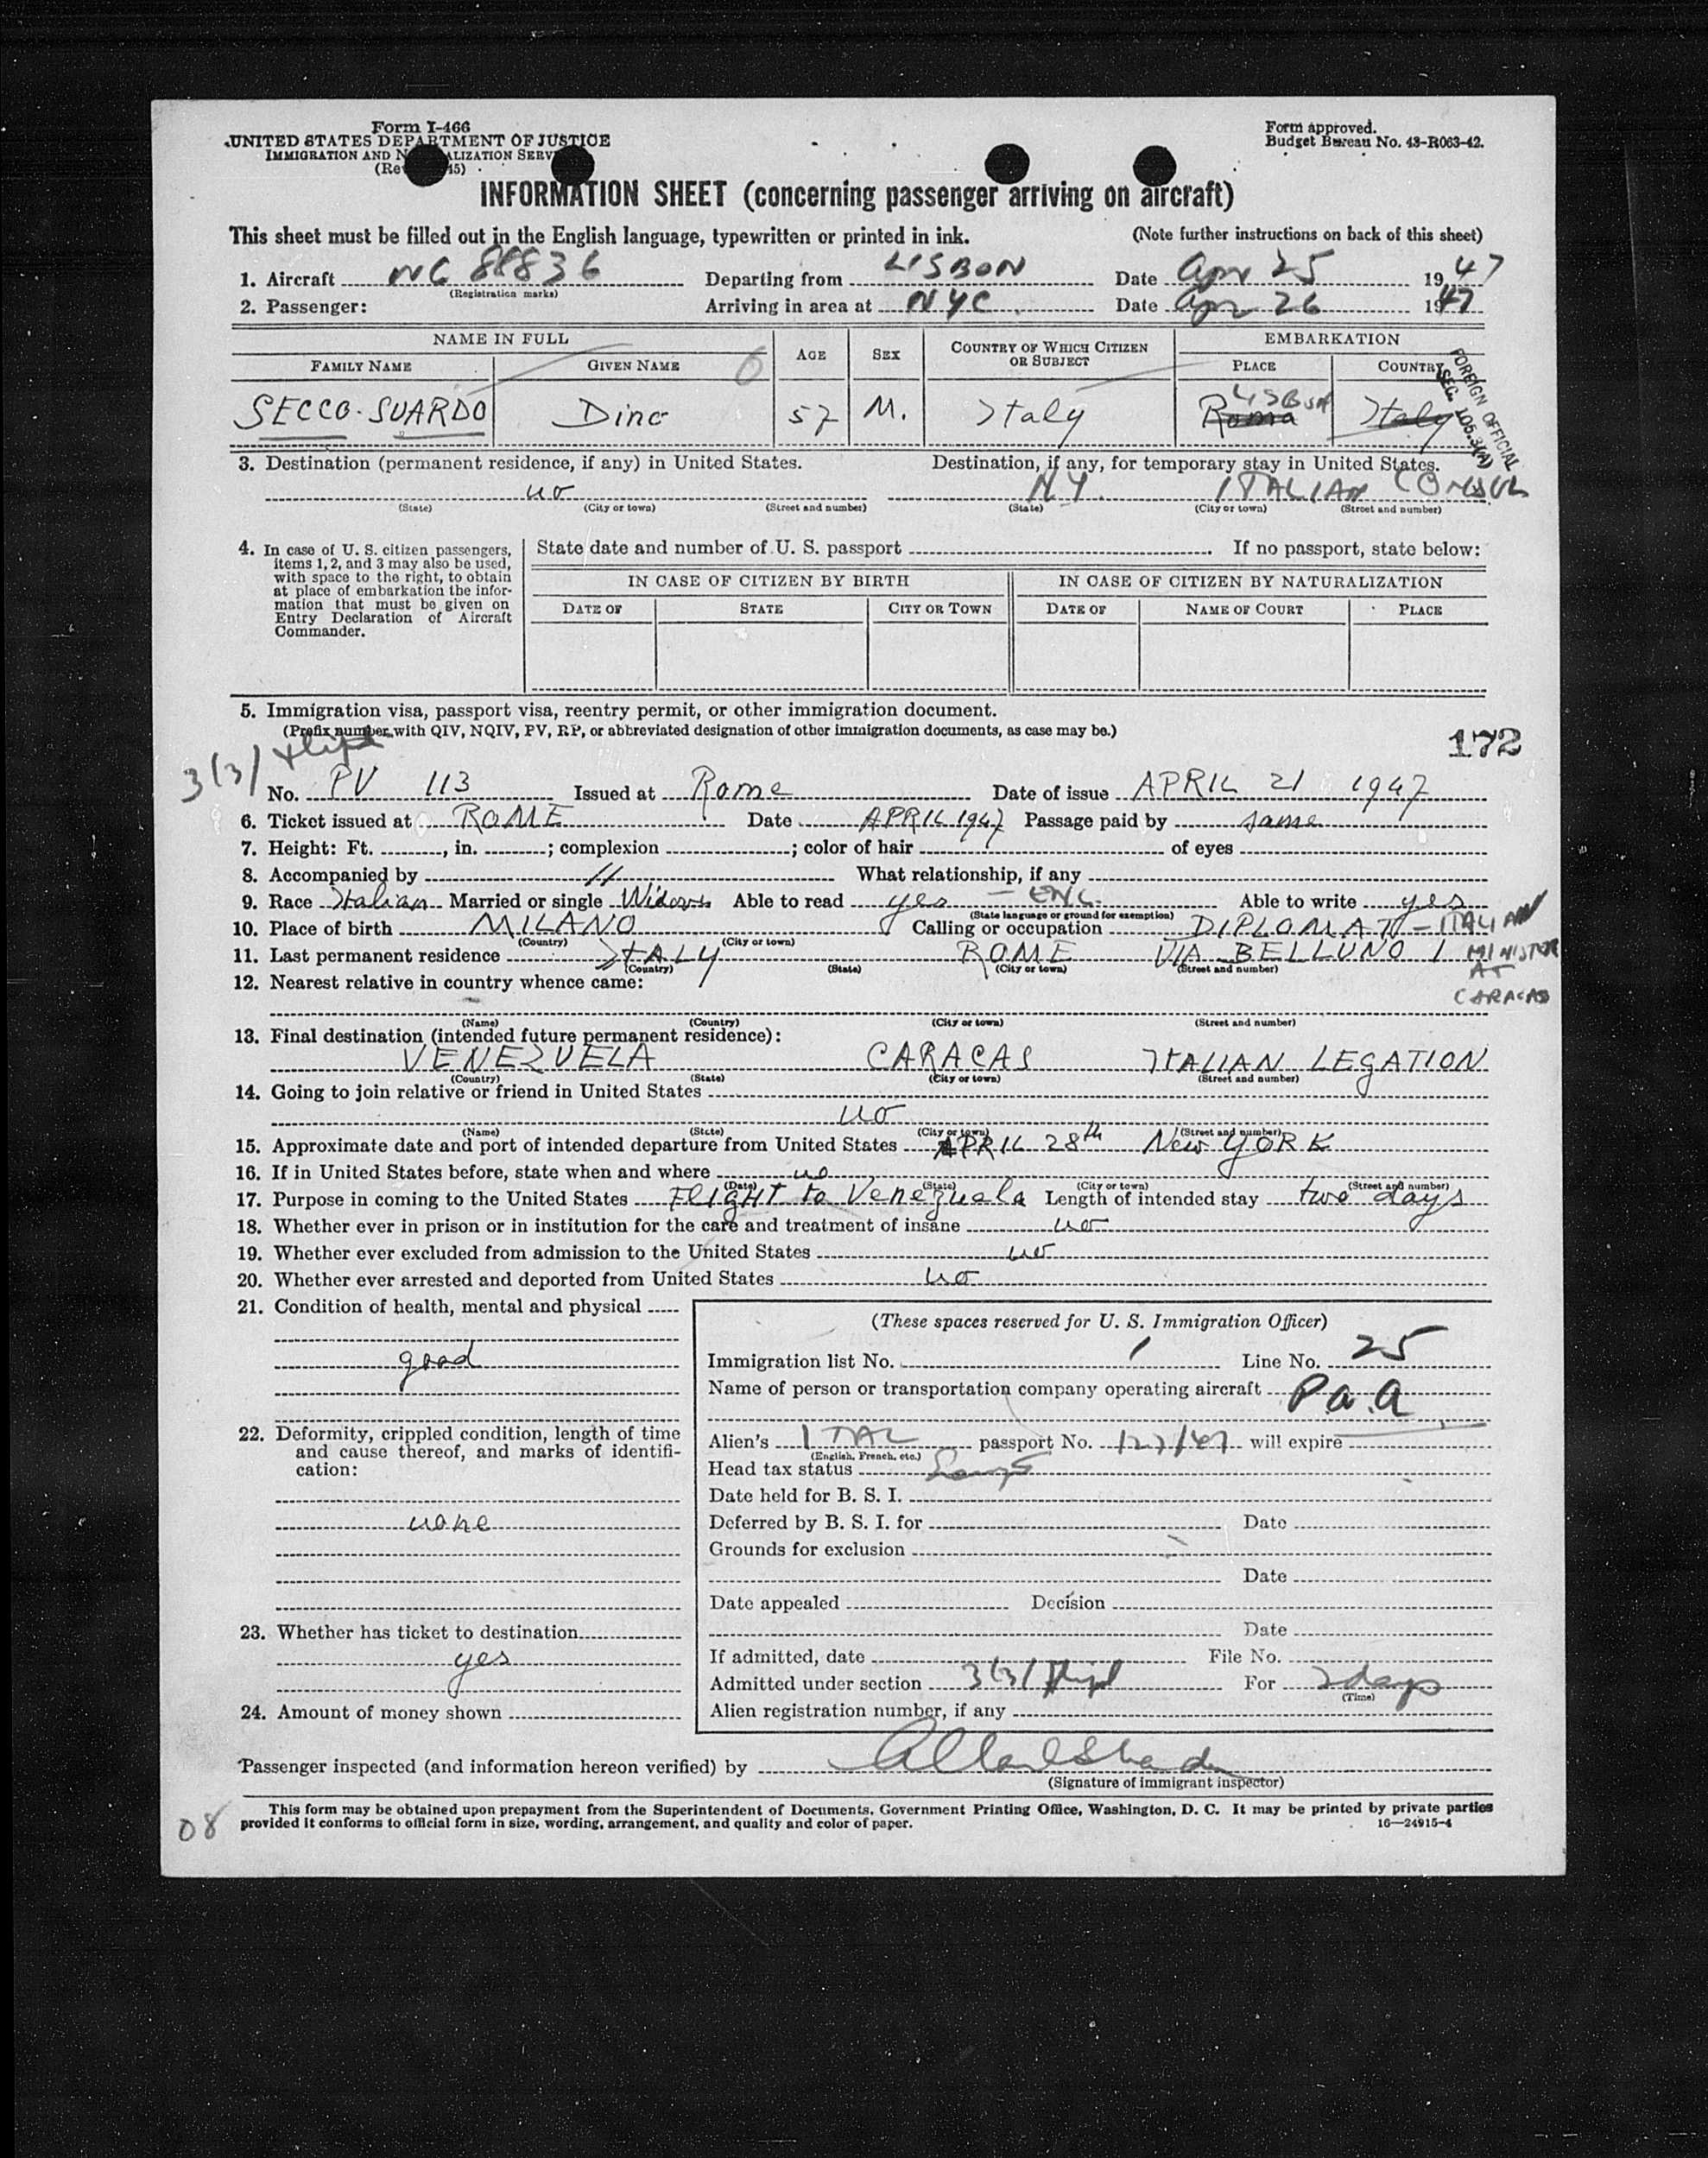 Form I-466
UNITED STATES DEPARTMENT OF JUSTICE
IMMIGRATION AND N ALIZATION SERV
(Re 45)
Form approved.
Budget Bureau No. 43-R063-42.
INFORMATION SHEET (concerning passenger arriving on aircraft)
This sheet must be filled out in the English language, typewritten or printed in ink. (Note further instructions on back of this sheet)
1. Aircraft NC 88836 Departing from LISBON Date Apr 25 1947
(Registration marks)
2. Passenger: Arriving in area at NYC. Date Apr 26 1947
NAME IN FULL AGE SEX COUNTRY OF WHICH CITIZEN OR SUBJECT EMBARKATION
FAMILY NAME GIVEN NAME PLACE COUNTRY
SECCO-SUARDO Dino 57 M. Italy Roma LISBON Italy
FOREIGN OFFICIAL
SEC. 105.3(A)
3. Destination (permanent residence, if any) in United States. Destination, if any, for temporary stay in United States.
no N.Y. ITALIAN CONSUL
(State) (City or town) (Street and number) (State) (City or town) (Street and number)
4. In case of U. S. citizen passengers, items 1, 2, and 3 may also be used, with space to the right, to obtain at place of embarkation the information that must be given on Entry Declaration of Aircraft Commander.
State date and number of U. S. passport . If no passport, state below:
IN CASE OF CITIZEN BY BIRTH IN CASE OF CITIZEN BY NATURALIZATION
DATE OF STATE CITY OR TOWN DATE OF NAME OF COURT PLACE
5. Immigration visa, passport visa, reentry permit, or other immigration document.
(Prefix number with QIV, NQIV, PV, RP, or abbreviated designation of other immigration documents, as case may be.)
172
3(3)
No. PV 113 Issued at Rome Date of issue APRIL 21 1947
6. Ticket issued at ROME Date APRIL 1947 Passage paid by same
7. Height: Ft. , in. ; complexion ; color of hair of eyes
8. Accompanied by // What relationship, if any
9. Race Italian Married or single Widower Able to read yes - ENG. Able to write yes
(State language or ground for exemption)
10. Place of birth MILANO Calling or occupation DIPLOMAT - ITALIAN MINISTER AT CARACAS
(Country) (City or town)
11. Last permanent residence ITALY ROME VIA BELLUNO 1
(Country) (State) (City or town) (Street and number)
12. Nearest relative in country whence came:
-
(Name) (Country) (City or town) (Street and number)
13. Final destination (intended future permanent residence):
VENEZUELA CARACAS ITALIAN LEGATION
(Country) (State) (City or town) (Street and number)
14. Going to join relative or friend in United States
no
(Name) (State) (City or town) (Street and number)
15. Approximate date and port of intended departure from United States APRIL 28th New YORK
16. If in United States before, state when and where no
(Date) (State) (City or town) (Street and number)
17. Purpose in coming to the United States FLIGHT to Venezuela Length of intended stay two days
18. Whether ever in prison or in institution for the care and treatment of insane no
19. Whether ever excluded from admission to the United States no
20. Whether ever arrested and deported from United States no
21. Condition of health, mental and physical
good
22. Deformity, crippled condition, length of time and cause thereof, and marks of identification:
none
23. Whether has ticket to destination
yes
24. Amount of money shown
(These spaces reserved for U. S. Immigration Officer)
Immigration list No. 1 Line No. 25
Name of person or transportation company operating aircraft P.a.a
Alien's ITAL passport No. 127/47 will expire
(English, French, etc.)
Head tax status
Date held for B. S. I.
Deferred by B. S. I. for Date
Grounds for exclusion
Date
Date appealed Decision
Date
If admitted, date File No.
Admitted under section 3(3) For 2 days
(Time)
Alien registration number, if any
Passenger inspected (and information hereon verified) by
(Signature of immigrant inspector)
This form may be obtained upon prepayment from the Superintendent of Documents, Government Printing Office, Washington, D. C. It may be printed by private parties
provided it conforms to official form in size, wording, arrangement, and quality and color of paper. 16—24915-4
08